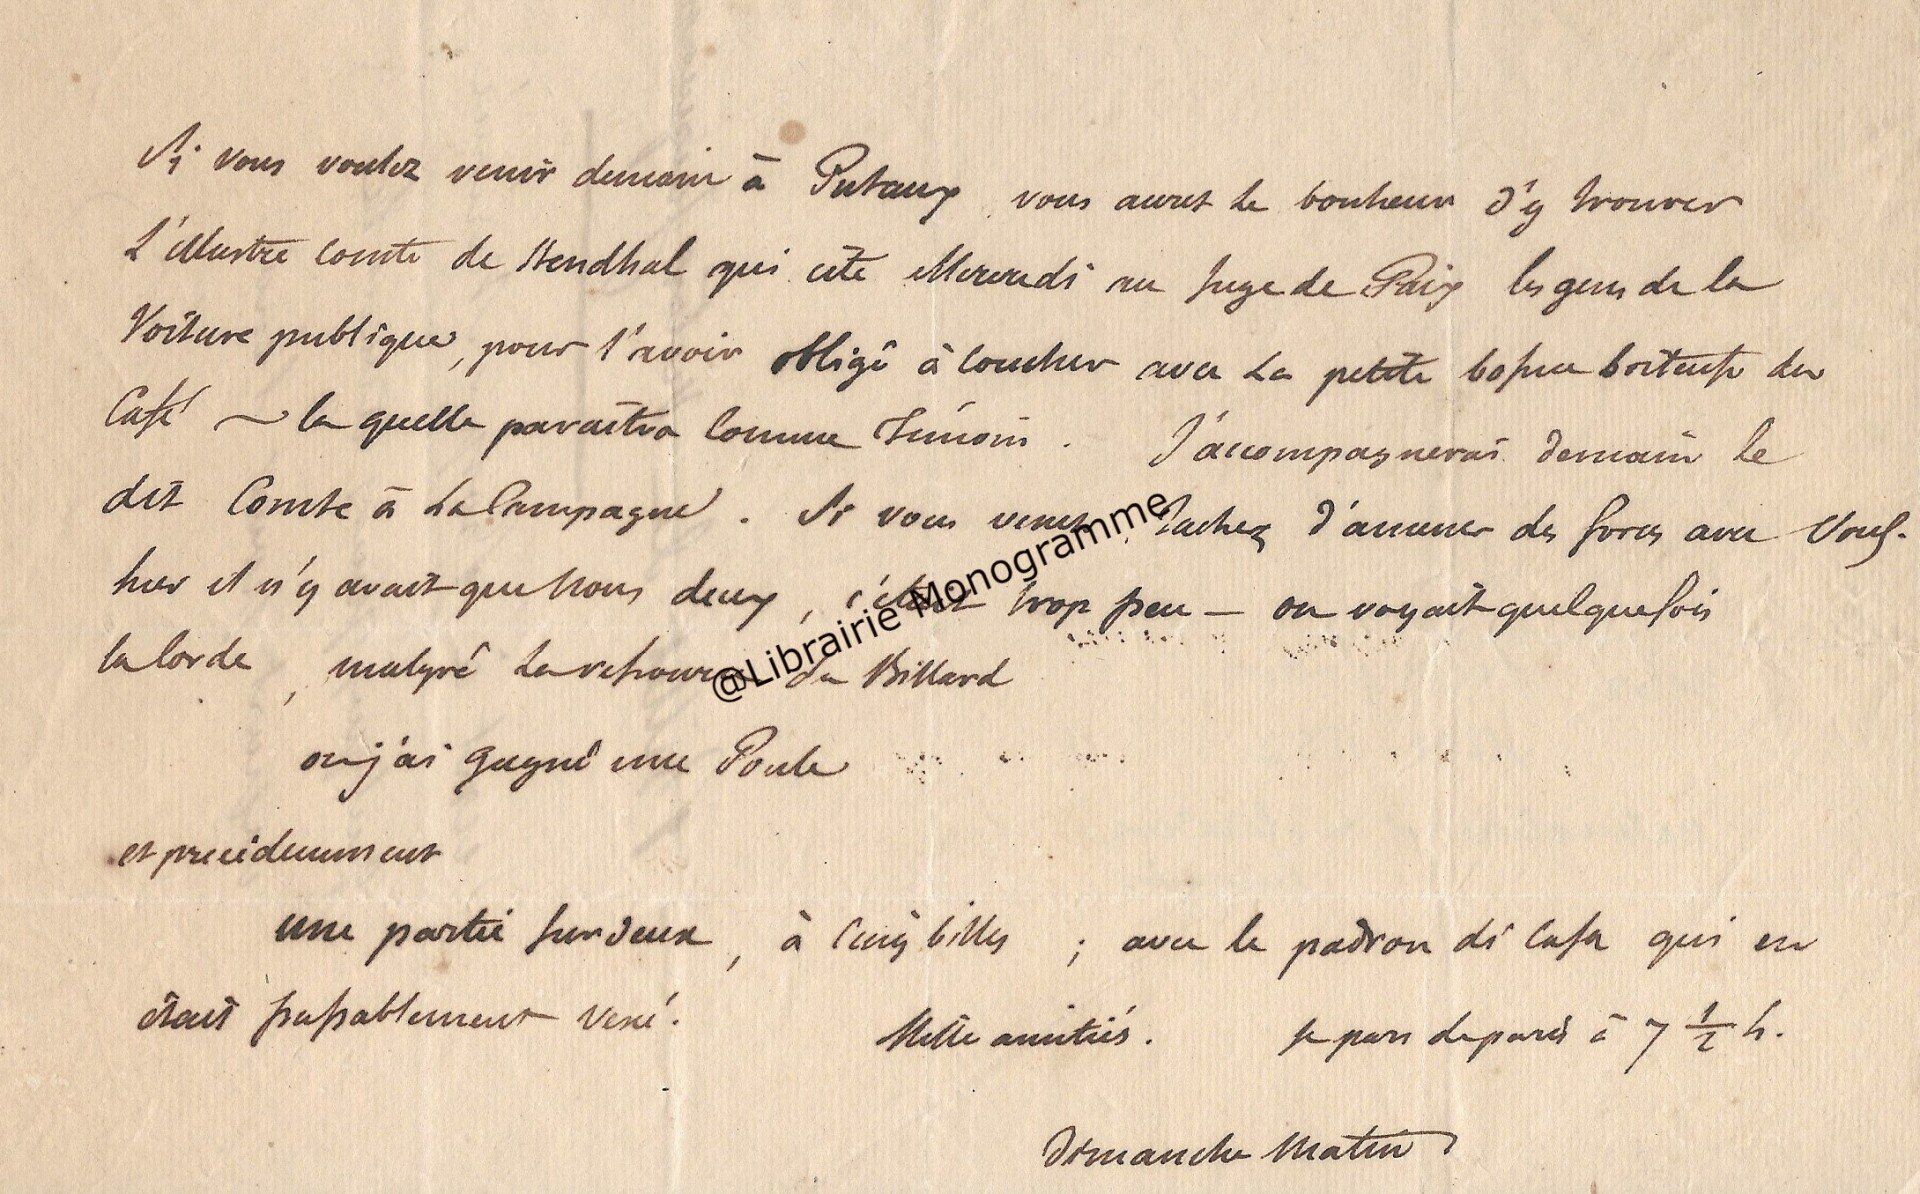 Si vous voulez venir demain à Putaux vous aurez le bonheur d'y trouver
L'illustre Comte de Stendhal qui cite Mercredi au Juge de Paix les gens de la
Voiture publique, pour l'avoir obligé à coucher avec la petite bossue boiteuse du
Café ~ la quelle paraîtra comme Témoin. J'accompagnerai demain le
dit Comte à La Campagne. Si vous venez, Tachez d'amener des forces avec Vous.
hier il n'y avait que Nous deux, c'était trop peu — on voyait quelquefois
la Corde, malgré la du Billard
ou j'ai gagné une Poule
et precedemment
une partie sur deux, à Cinq billes ; avec le padron di Cafa qui en
était passablement vexé.
Mille amitiés. Je pars de paris à 7 1/2 h.
Dimanche Matin
@Librairie Monogramme